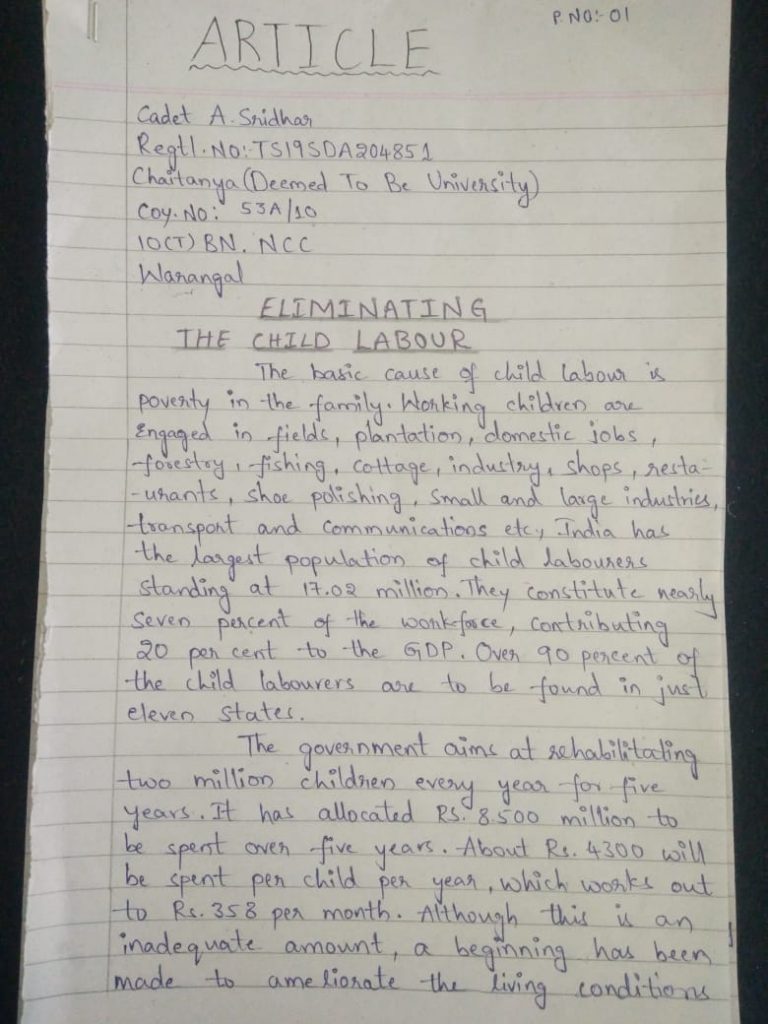 P. NO:- 01
ARTICLE
Cadet A. Sridhar
Regtl. No: TS19SDA204851
Chaitanya (Deemed To Be University)
Coy. No: 53A/10
10(T) BN. NCC
Warangal
ELIMINATING
THE CHILD LABOUR
The basic cause of child labour is
poverty in the family. Working children are
Engaged in fields, plantation, domestic jobs,
forestry, fishing, cottage, industry, shops, resta-
-urants, shoe polishing, small and large industries,
transport and communications etc., India has
the largest population of child labourers
standing at 17.02 million. They constitute nearly
seven percent of the workforce, contributing
20 per cent to the GDP. Over 90 percent of
the child labourers are to be found in just
eleven states.
The government aims at rehabilitating
two million children every year for five
years. It has allocated Rs. 8.500 million to
be spent over five years. About Rs. 4300 will
be spent per child per year, which works out
to Rs. 358 per month. Although this is an
inadequate amount, a beginning has been
made to ameliorate the living conditions